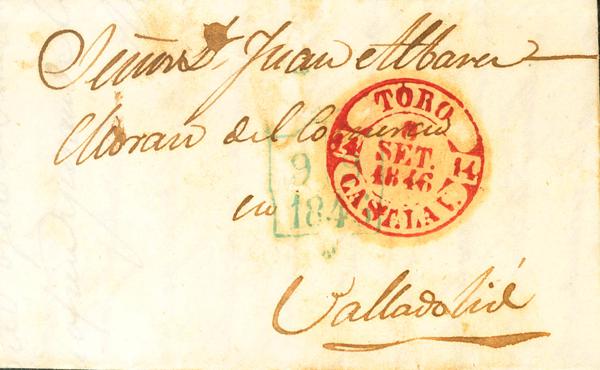 Señor D. Juan Alvarez
Moran del Comercio
en
Valladolid
TORO
14
SET.
1846
14
CAST. LA V.
9
184